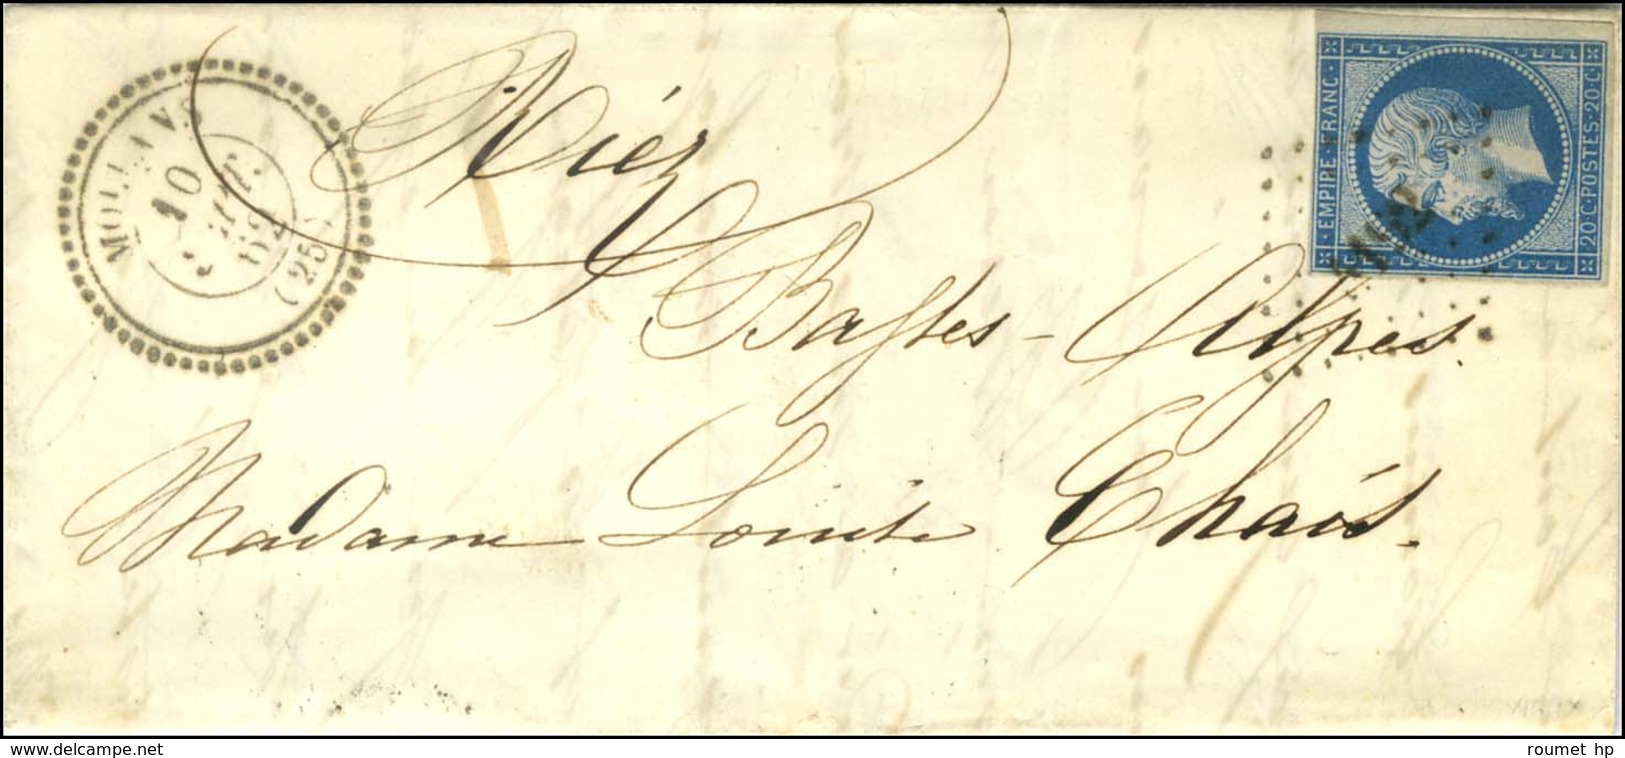 10
62
(25)
EMPIRE·FRANC·
20·C·POSTES·20·C
Riez
Basses-Alpes.
Madame Louise Chaïs.
www.delcampe.net
roumet hp